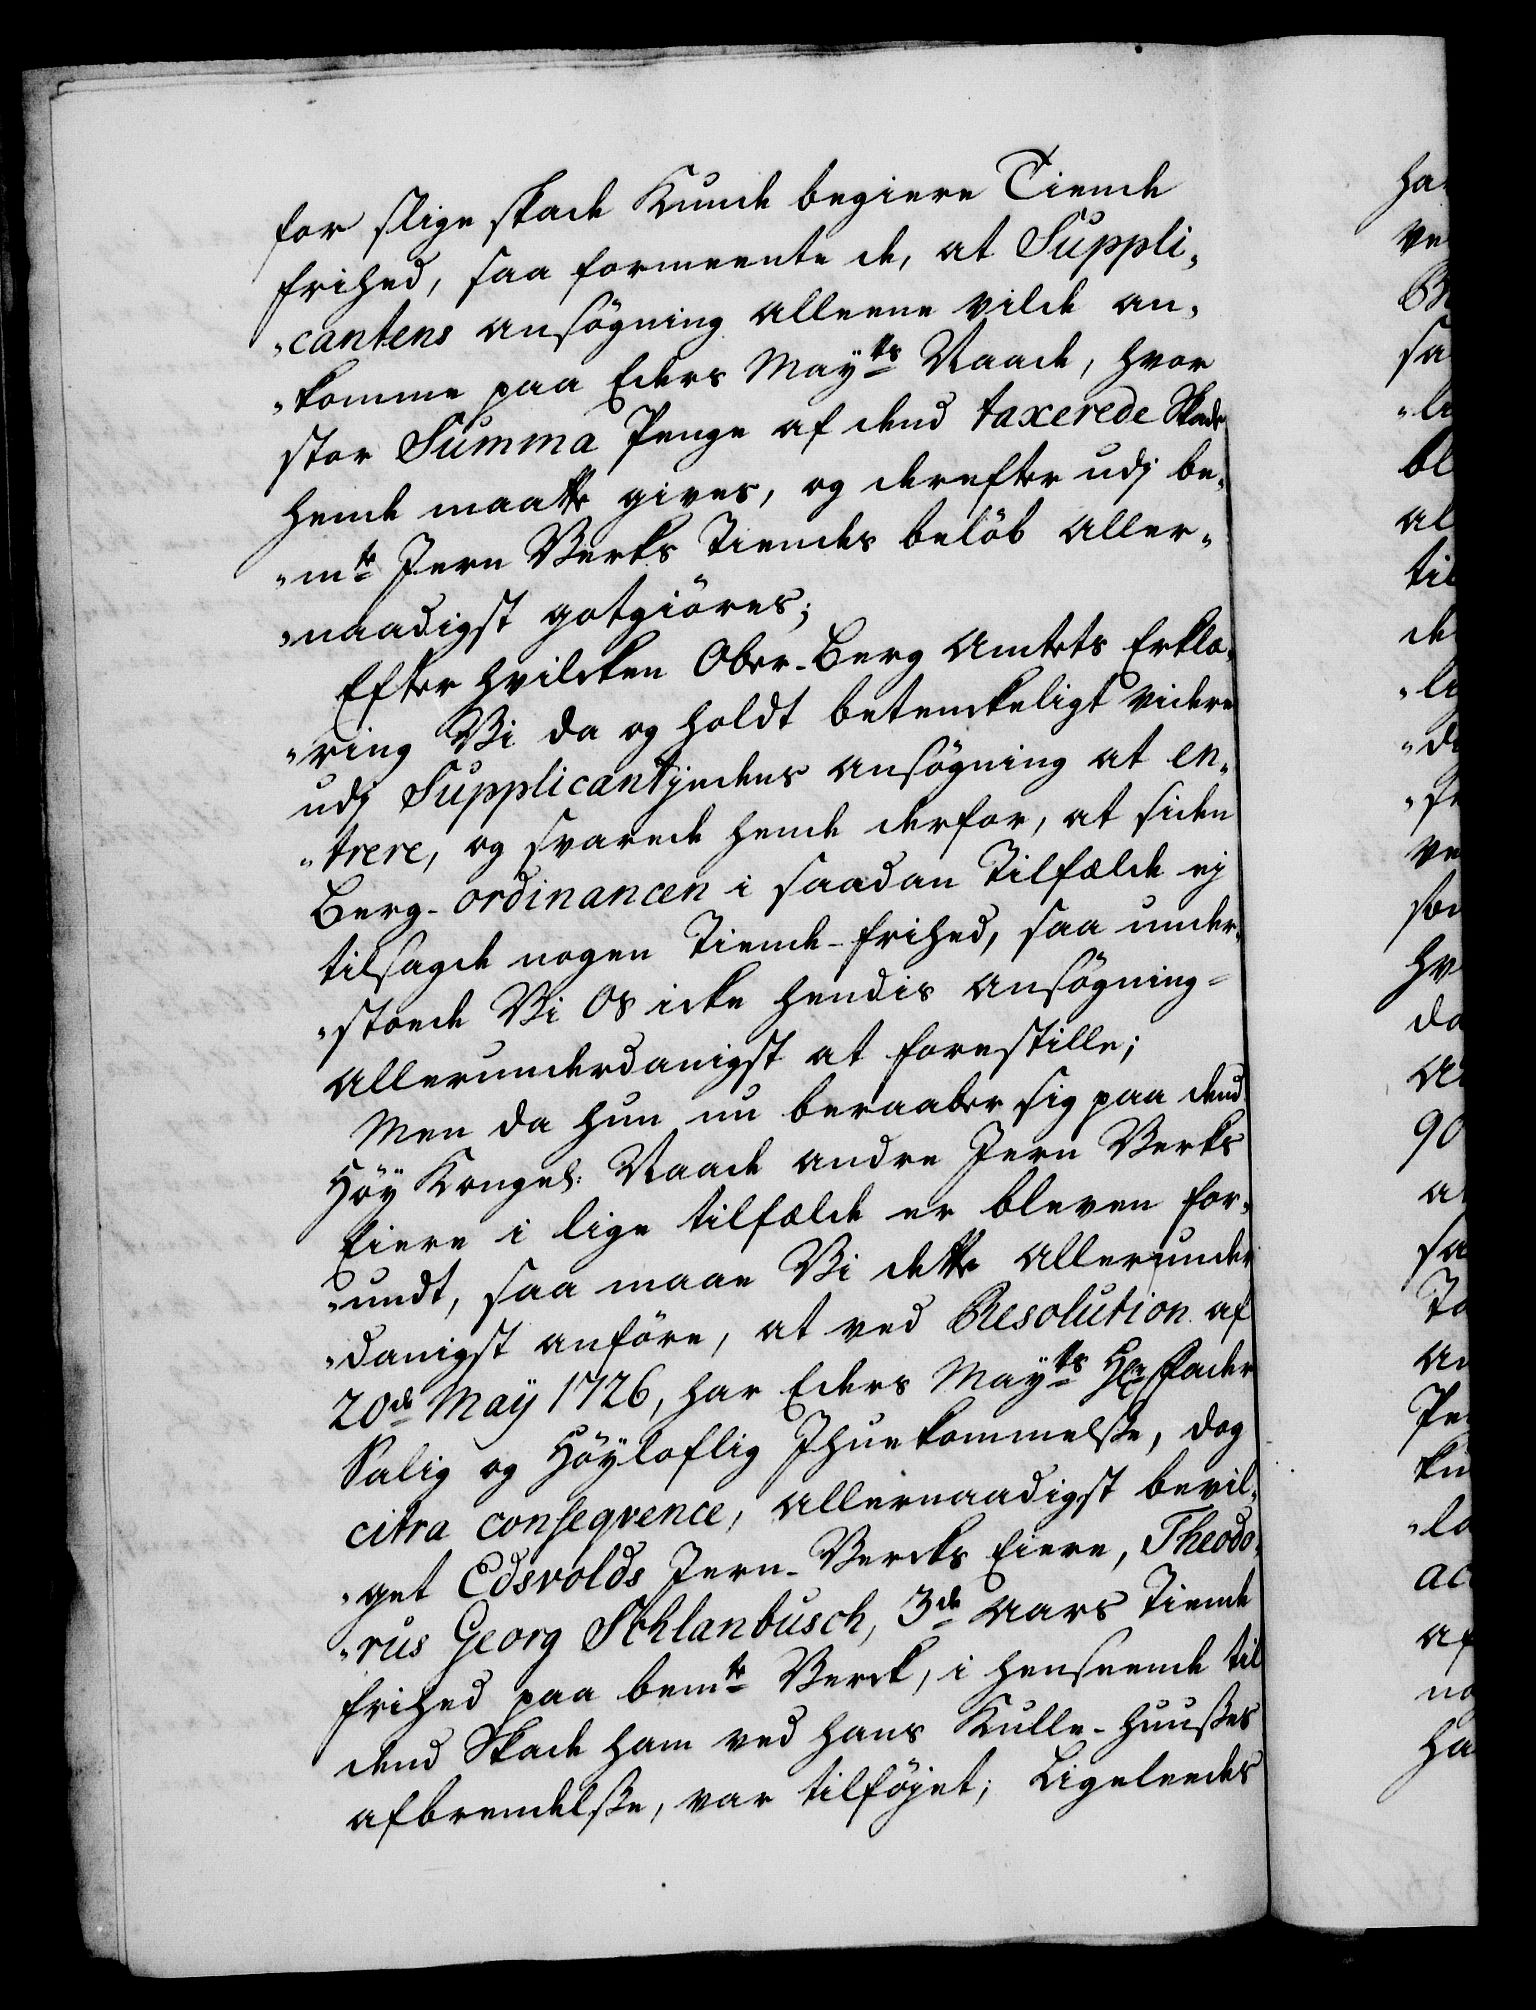 for slige skade Kunde begiere Tiende
frihed, saa formeente de, at Suppli„
„cantens ansögning alleene vilde an„
„komme paa Eders Mayts Naade, hvor
stor Summa Penge af dend taxerede Skade
hende maatte gives, og derefter udj be„
„mte Jern Verks Tiendes belöb aller„
„naadigst gotgiöres;
Efter hvilcken Ober-Berg Amtets Erklæ„
„ring Vi da og holdt betenckeligt videre
udj Supplicantindens ansögning at en„
„trere, og svarede hende derfor, at siden
Berg-ordinancen i saadan Tilfælde ej
tilsagde nogen Tiende-frihed, saa under„
„stoede Vi Os icke hendis ansögning
allerunderdanigst at forestille;
Men da hun nu beraaber sig paa dend
Höy Kongel: Naade andre Jern Verks
Eiere i lige tilfælde er bleven for„
„undt, saa maae Vi dette allerunder
„danigst anföre, at ved Resolution af
20de Maÿ 1726, har Eders Mayts Hr Fader
Salig og Höyloflig Jhuekommelsse, dog
citra conseqvence, allernaadigst bevil„
„get Edsvolds Jern-Vercks Eiere, Theodo„
„rus Georg Schlanbusch, 3de Aars Tiende
frihed paa bemte Verck, i henseende til
dend Skade ham ved hans Kulle-huusses
afbrendelsse, var tilföjet; Ligeleedes